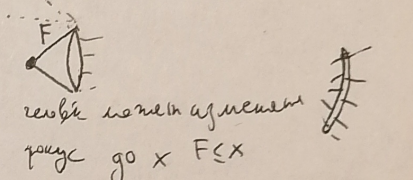 F
человек может изменять
фокус до x F≤x